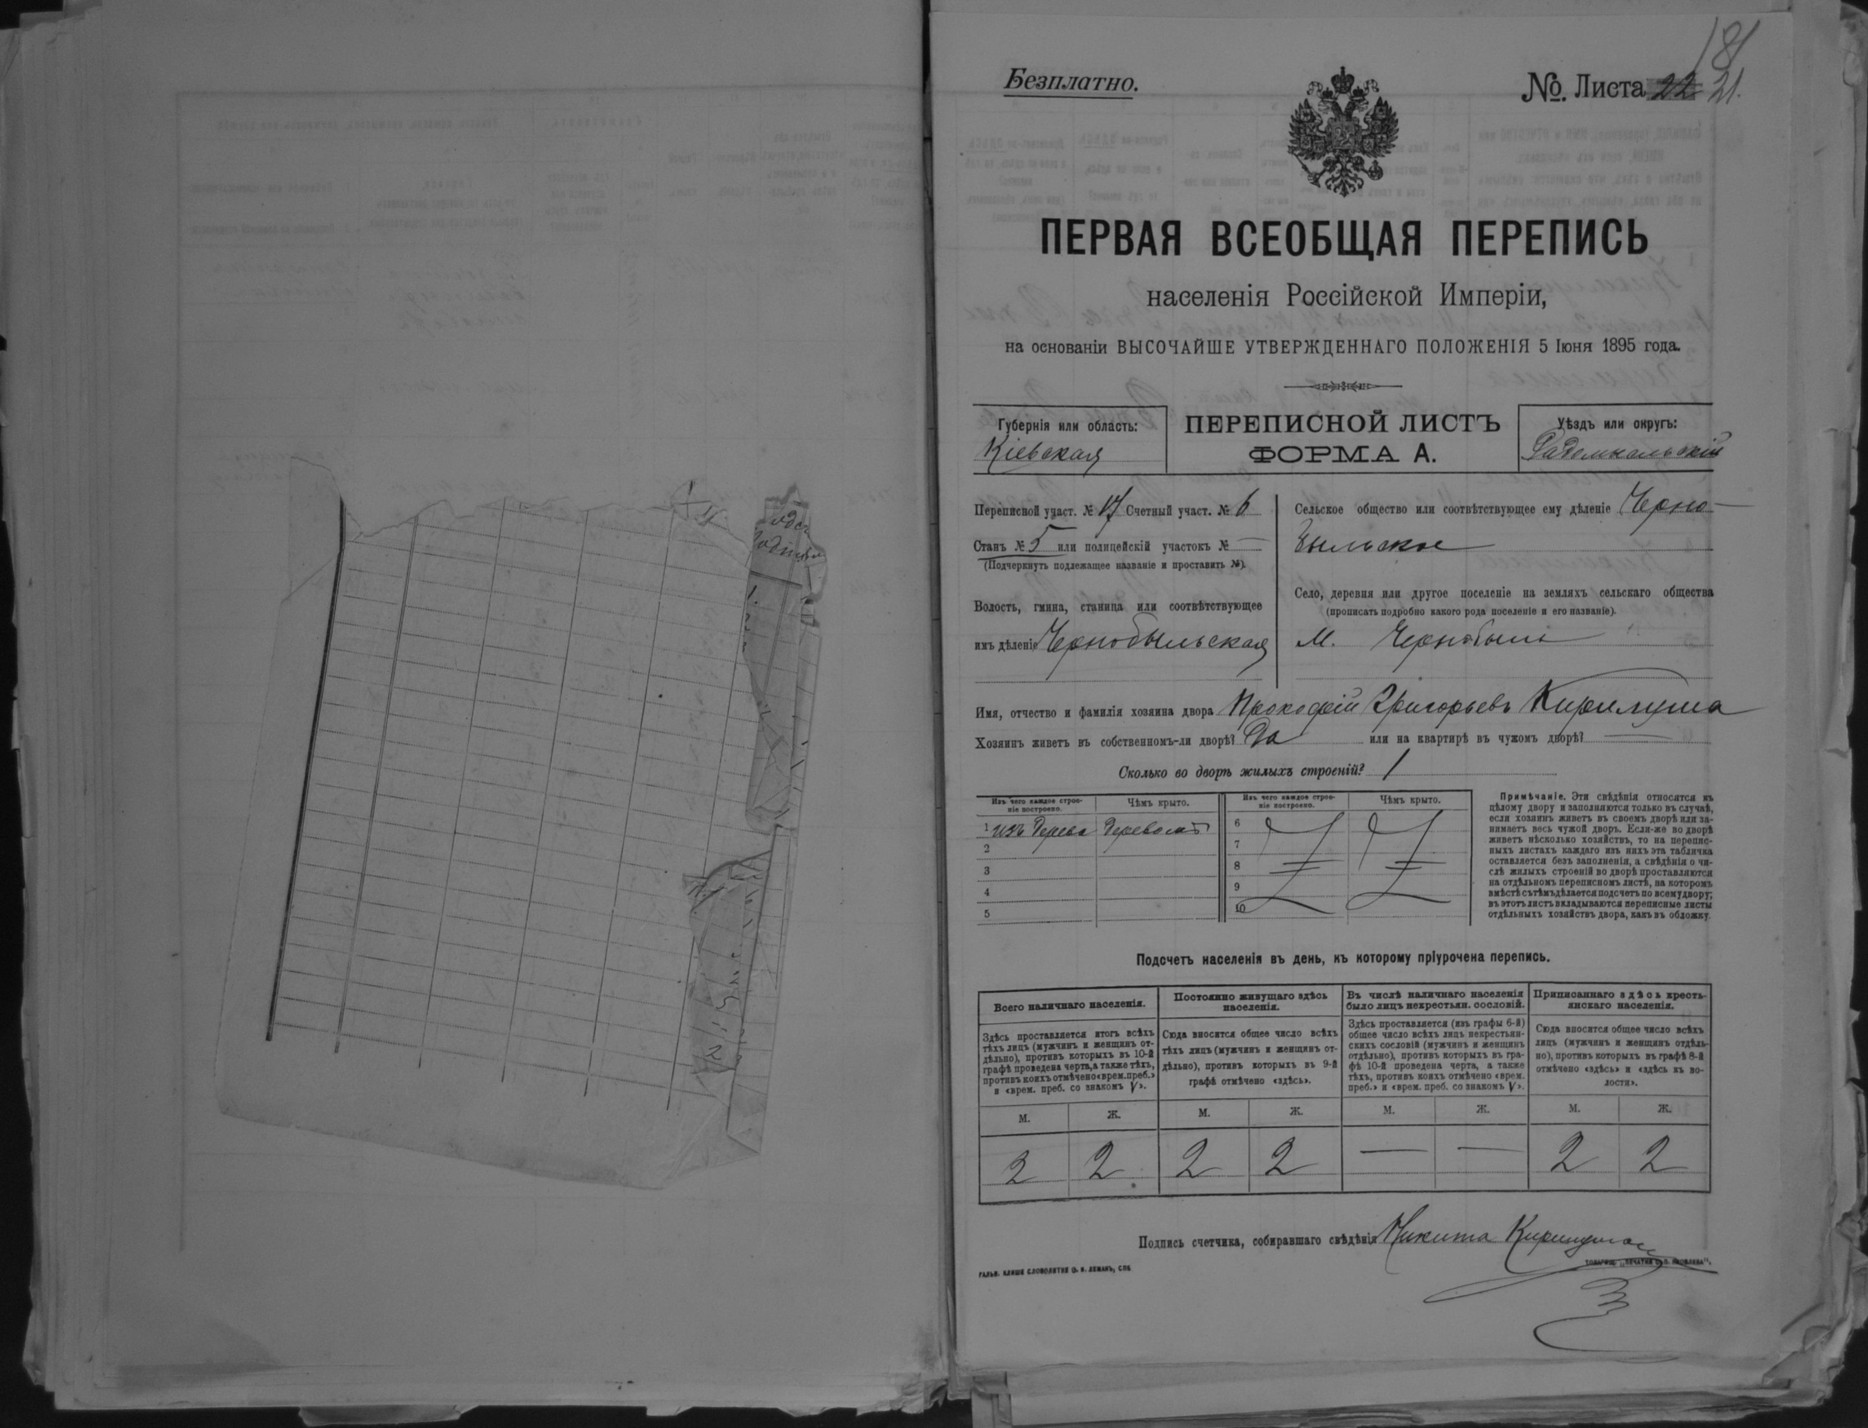 181
Безплатно.
№ Листа 22 21.
ПЕРВАЯ ВСЕОБЩАЯ ПЕРЕПИСЬ
населенія Россійской Имперіи,
на основаніи ВЫСОЧАЙШЕ УТВЕРЖДЕННАГО ПОЛОЖЕНІЯ 5 Іюня 1895 года.
Губернія или область:
Кіевская
ПЕРЕПИСНОЙ ЛИСТЪ
ФОРМА А.
Уѣздъ или округъ:
Радомысльскій
Переписной участ. № 17 Счетный участ. № 6
Станъ № 5 или полицейскій участокъ № —
(Подчеркнуть подлежащее названіе и проставить №).
Волость, гмина, станица или соотвѣтствующее
имъ дѣленіе Чернобыльская
Сельское общество или соотвѣтствующее ему дѣленіе Черно-
быльское
Село, деревня или другое поселеніе на земляхъ сельскаго общества
(прописать подробно какого рода поселеніе и его названіе).
М. Чернобыль
Имя, отчество и фамилія хозяина двора Прокофій Григорьевъ Кирилуша
Хозяинъ живетъ въ собственномъ-ли дворѣ? Да или на квартирѣ въ чужомъ дворѣ? —
Сколько во дворѣ жилыхъ строеній? 1
Изъ чего каждое строе-
ніе построено.
Чѣмъ крыто.
1 изъ дерева деревомъ
2
3
4
5
Изъ чего каждое строе-
ніе построено.
Чѣмъ крыто.
6
7
8
9
10
Примѣчаніе. Эти свѣдѣнія относятся къ
цѣлому двору и заполняются только въ случаѣ,
если хозяинъ живетъ въ своемъ дворѣ или за-
нимаетъ весь чужой дворъ. Если-же во дворѣ
живетъ нѣсколько хозяйствъ, то на перепис-
ныхъ листахъ каждаго изъ нихъ эта табличка
оставляется безъ заполненія, а свѣдѣнія о чи-
слѣ жилыхъ строеній во дворѣ проставляются
на отдѣльномъ переписномъ листѣ, на которомъ
вмѣстѣ съ тѣмъ дѣлается подсчетъ по всему двору;
въ этотъ листъ вкладываются переписные листы
отдѣльныхъ хозяйствъ двора, какъ въ обложку.
Подсчетъ населенія въ день, къ которому пріурочена перепись.
Всего наличнаго населенія.
Здѣсь проставляется итогъ всѣхъ
тѣхъ лицъ (мужчинъ и женщинъ от-
дѣльно), противъ которыхъ въ 10-й
графѣ проведена черта, а также тѣхъ,
противъ коихъ отмѣчено «врем. преб.»
и «врем. преб. со знакомъ V».
М. Ж.
2 2
Постоянно живущаго здѣсь
населенія.
Сюда вносится общее число всѣхъ
тѣхъ лицъ (мужчинъ и женщинъ от-
дѣльно), противъ которыхъ въ 9-й
графѣ отмѣчено «здѣсь».
М. Ж.
2 2
Въ числѣ наличнаго населенія
было лицъ некрестьян. сословій.
Здѣсь проставляется (изъ графы 6-й)
общее число всѣхъ лицъ некрестьян-
скихъ сословій (мужчинъ и женщинъ
отдѣльно), противъ которыхъ въ гра-
фѣ 10-й проведена черта, а также
тѣхъ, противъ коихъ отмѣчено «врем.
преб.» и «врем. преб. со знакомъ V».
М. Ж.
— —
Приписаннаго здѣсь кресть-
янскаго населенія.
Сюда вносится общее число всѣхъ
лицъ (мужчинъ и женщинъ отдѣль-
но), противъ которыхъ въ графѣ 8-й
отмѣчено «здѣсь» и «здѣсь къ во-
лости».
М. Ж.
2 2
Подпись счетчика, собиравшаго свѣдѣнія Никита Кирилуша
ГАЛЬВ. КЛИШЕ СЛОВОЛИТНИ О. И. ЛЕМАНЪ, СПБ